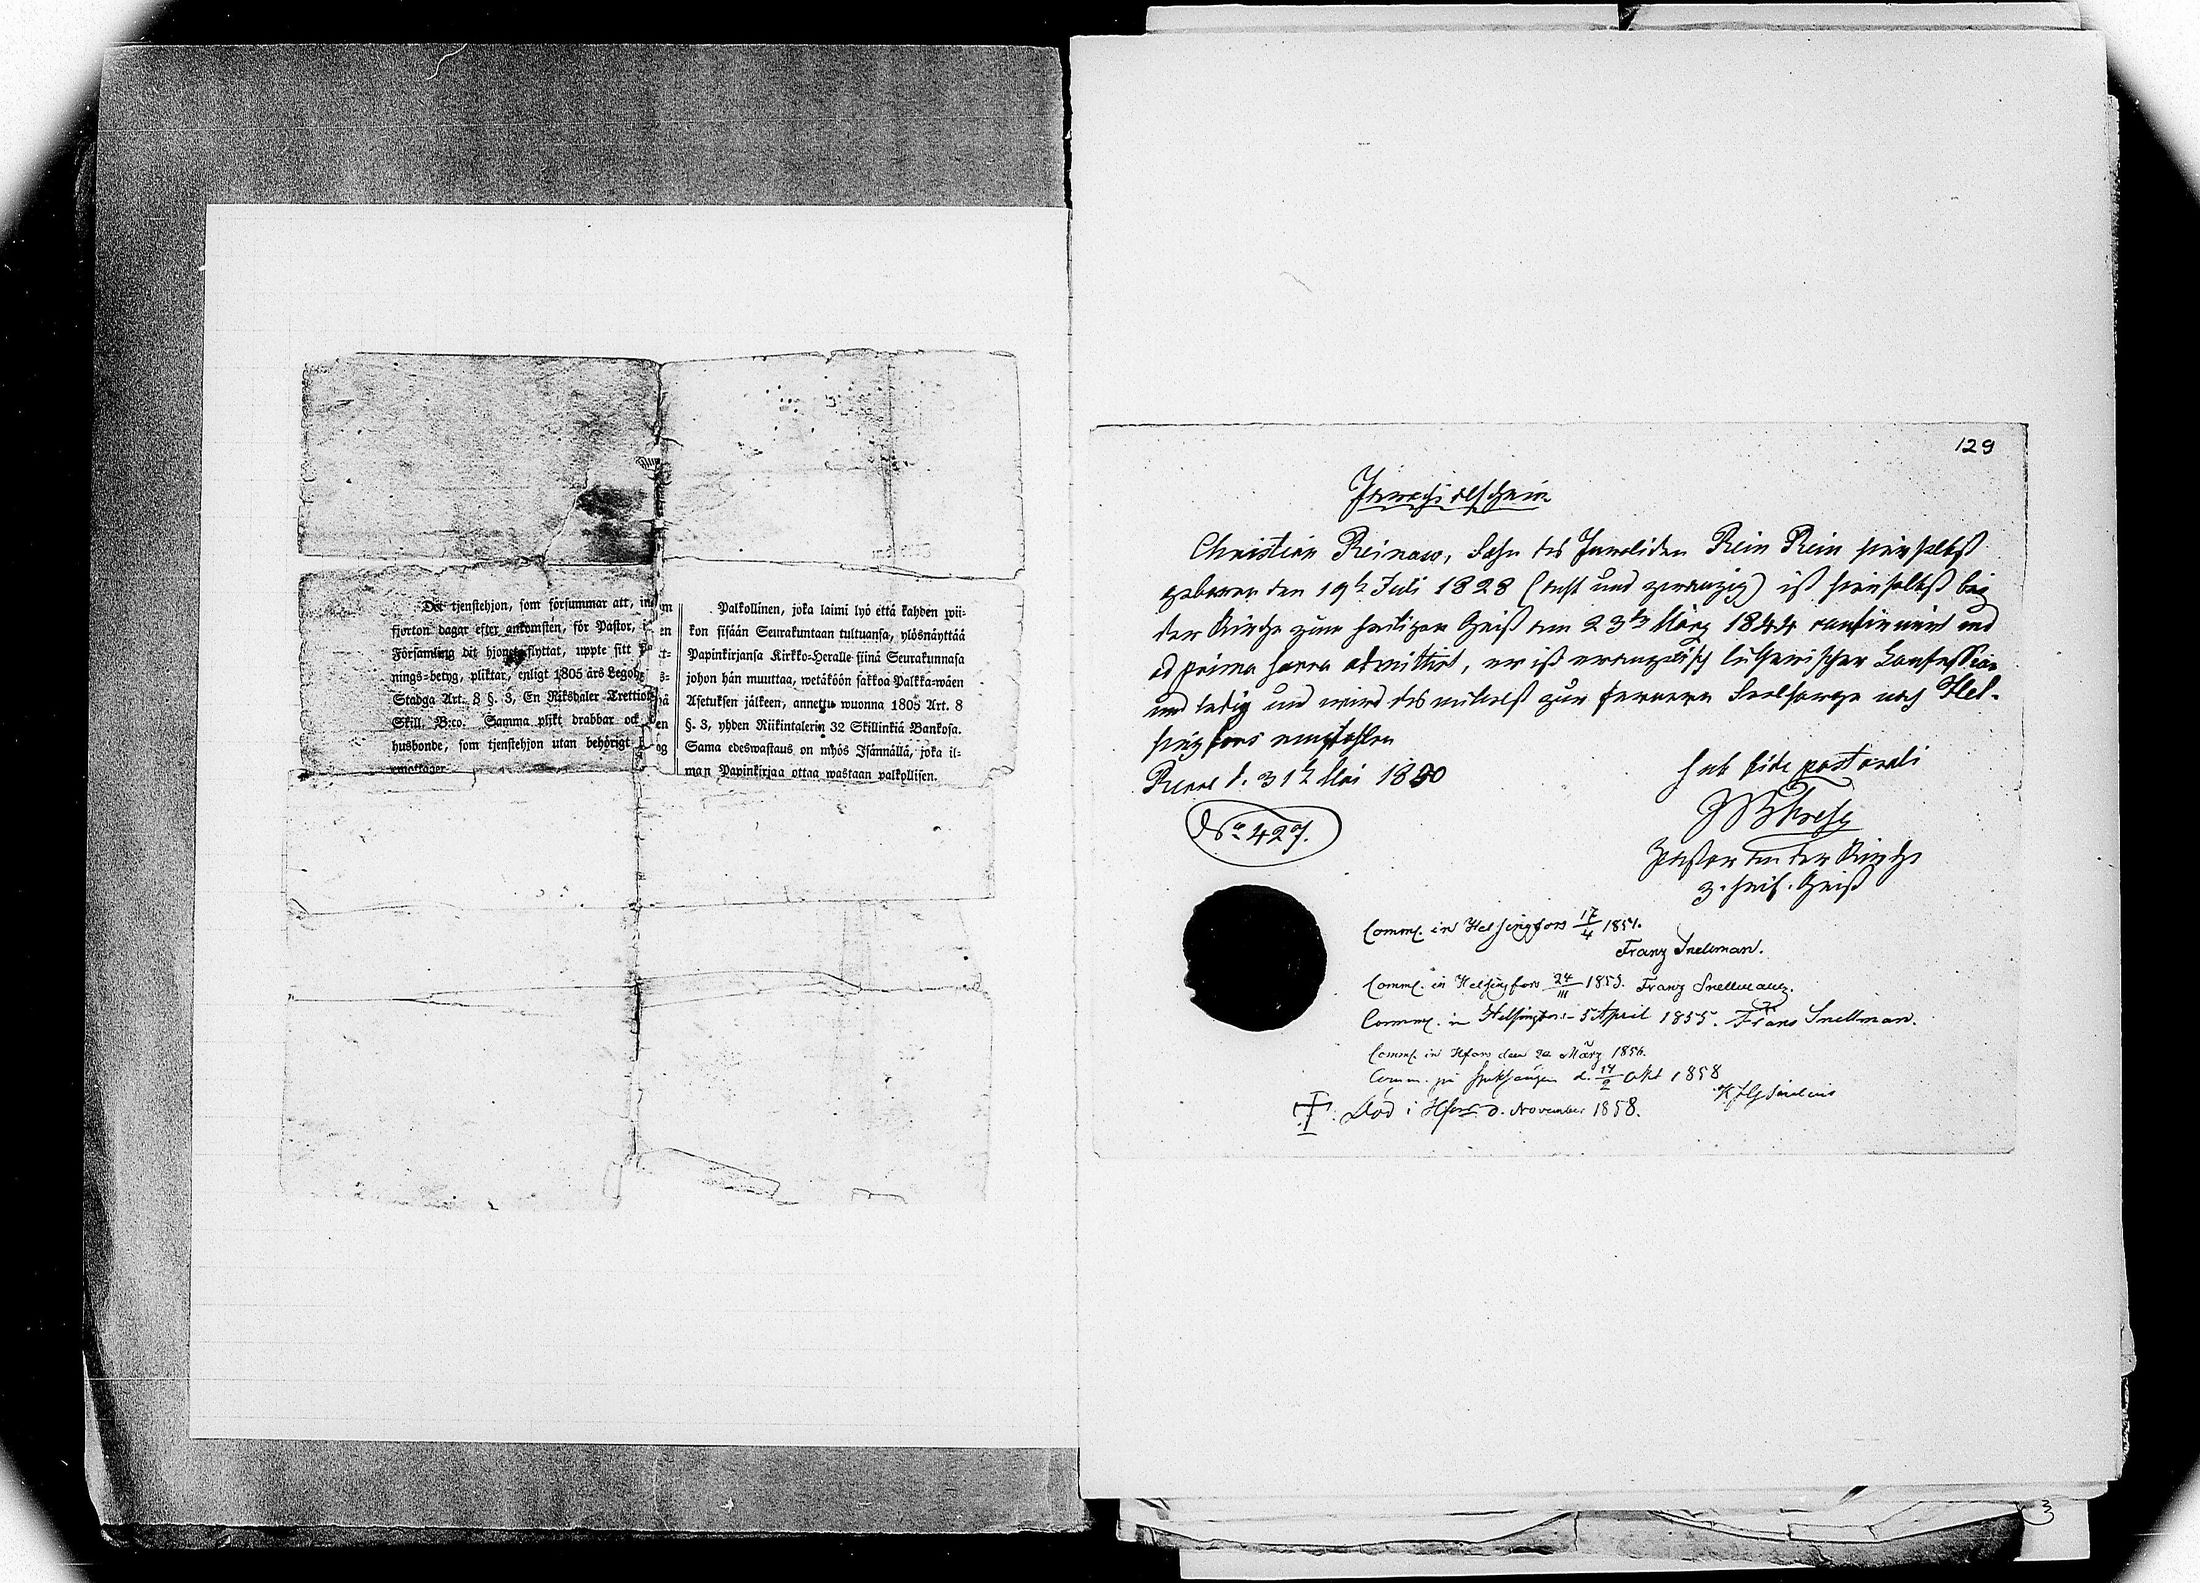 Det tjenstehjon, som försummar att, in
fjorton dagar efter ankomsten, för Pastor, i
Församling dit hjonet flyttat, uppte sitt
nings-betyg, pliktar, enligt 1805 års Legoh
Stadga Art. 8 §. 3, En Riksdaler Trettio
Skill. B:co. Samma plikt drabbar oc
husbonde, som tjenstehjon utan behörigt
emottager
Palkollinen, joka laimi lyö että kahden wii-
kon sisään Seurakuntaan tultuansa, ylösnäyttää
Papinkirjansa Kirkko-Heralle siinä Seurakunnasa
johon hän muuttaa, wetäköön sakkoa Palkka-wäen
Asetuksen jälkeen, annettu wuonna 1805 Art. 8
§. 3, yhden Riikintalerin 32 Skillinkiä Bankosa.
Sama edeswastaus on myös Isännällä, joka il-
man Papinkirjaa ottaa wastaan palkollisen.
129
Parochialschein
Christian Reinaw, Sohn des Invaliden Rein Rein hieselbst
geboren den 19t Juli 1828 (acht und zwanzig) ist hieselbst bei
der Kirche zum heiligen Geist am 23ts März 1844 confirmirt und
ad prima sacra admittirt, er ist evangelisch lutherischer Confession
und ledig und wird desmittelst zur ferneren Seelsorge nach Hel-
singfors empfohlen
Reval d. 31t Mai 1850
No 427.
sub fide pastorali
Pastor an der Kirche
z. heil. Geist
Comm. in Helsingfors 17/4 1851.
Franz Snellman.
Comm. in Helsingfors 24/III 1853. Franz Snellman.
Comm. in Helsingfors 5 April 1855. Frans Snellman.
Comm. in Hfors den März 1856.
Comm. på d. Okt 1858
Död i Hfors d. November 1858.
3